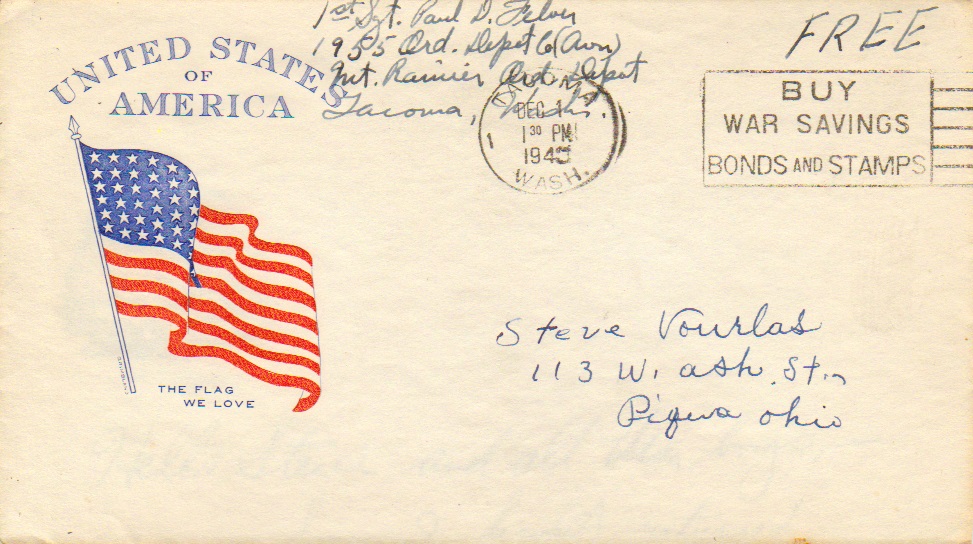 1st Sgt. Paul D. Felver
1955 Ord. Depot Co (Avn)
Mt. Rainier Ord. Depot
Tacoma, Wash.
FREE
UNITED STATES
OF
AMERICA
TACOMA
DEC 1
1 30 PM
1943
WASH.
1
BUY
WAR SAVINGS
BONDS AND STAMPS
Steve Vourlas
113 W. ash. St.
Piqua ohio
THE FLAG
WE LOVE